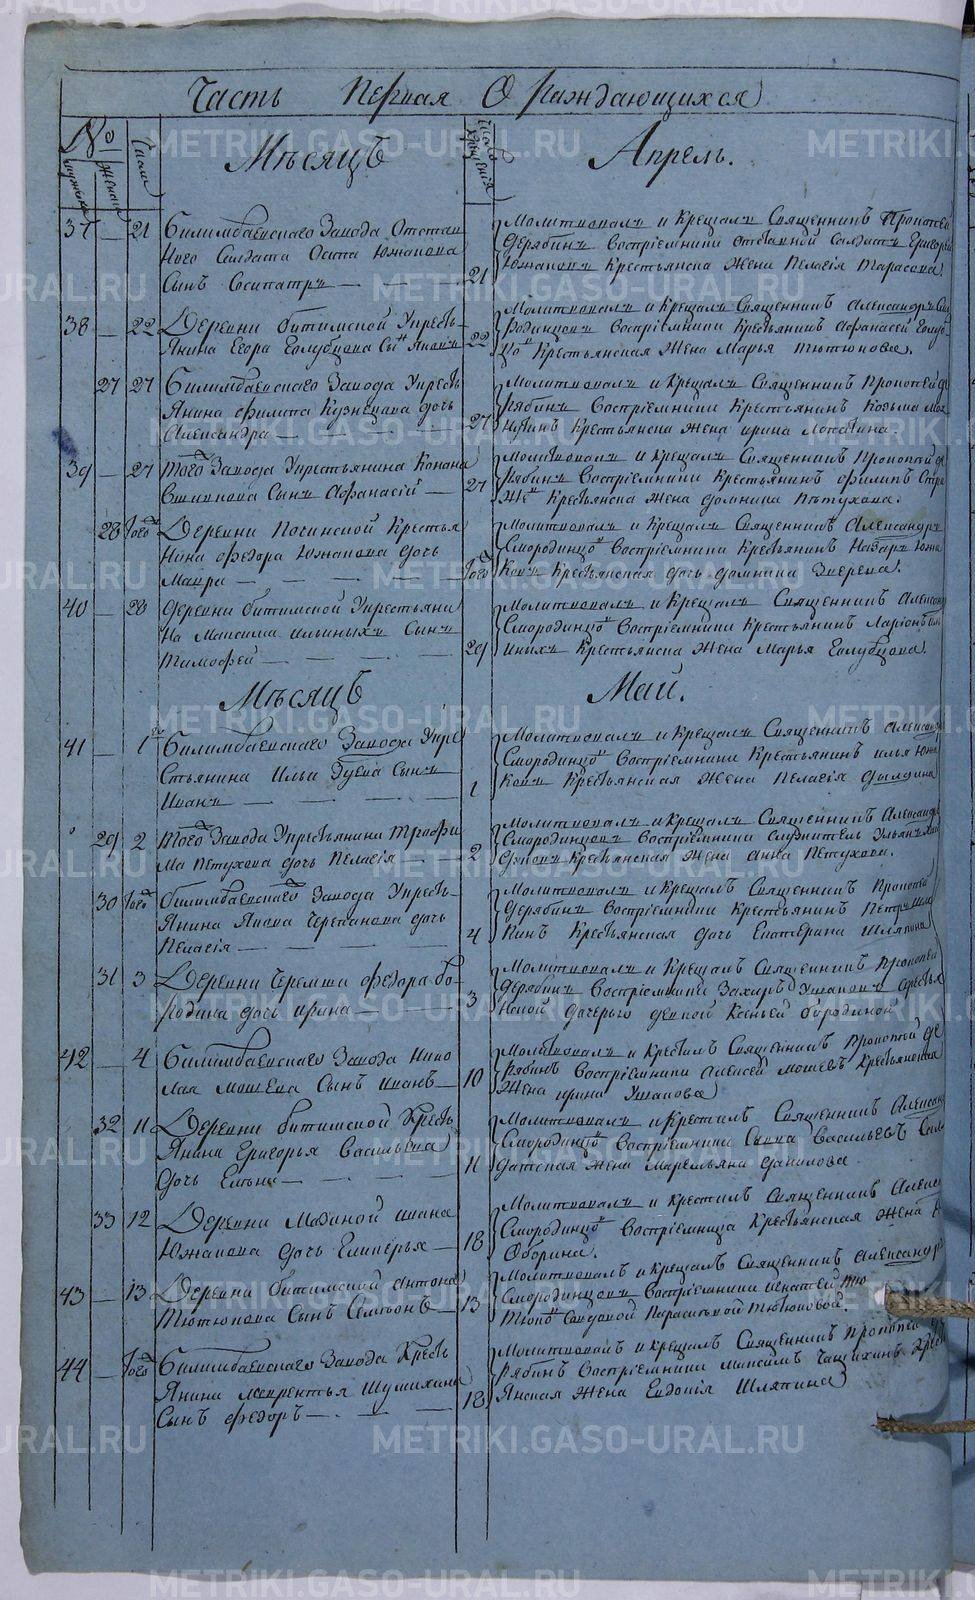 Часть Первая О раждающихся
№
мужеска
женска
Число
Месяцъ
Число крещенія
Апрель.
37 — 21 Билимбаевскаго Завода Отстав
наго Салдата Осипа Южакова
Сынъ Сосипатръ — — —
21 Молитвовалъ и Крещалъ Священникъ Прокопей
Дерябинъ Воспріемники отставной Салдатъ Григорей
Южаковъ Крестьянска Жена Пелагія Тарасова.
38 — 22 Деревни битимской Укресть
янина Егора Голубцова Сынъ Яковъ
22 Молитвовалъ и Крещалъ Священникъ Александръ Смо
родинцовъ Воспріемники Крестьянинъ Афанасей Голуб
цовъ Крестьянская Жена Марья Тютюкова.
27 27 Билимбаевскаго Завода Укресть
янина Филипа Кузнецова дочь
Александра — — —
27 Молитвовалъ и Крещалъ Священникъ Прокопей де
рябинъ Воспріемники Крестьянинъ Козьма
Крестьянска Жена ирина Лопатина.
39 — 27 Того Завода Укрестьянина Конана
Сынъ Афанасій —
27 Молитвовалъ и Крещалъ Священникъ Прокопей де
рябинъ Воспріемники Крестьянинъ Филипъ
Крестьянска Жена Домника Петухова.
28 того Деревни Починской Крестья
нина Федора Южакова дочь
Мавра — — — —
того Молитвовалъ и Крещалъ Священникъ Александръ
Смородинцовъ Воспріемники Крестьянинъ Назаръ Южа
ковъ Крестьянская дочь домника Зверева.
40 — 28 деревни битимской Укрестьяни
на Максима Ильиныхъ Сынъ
Тимофей — — — —
29 Молитвовалъ и Крещалъ Священникъ Александръ
Смородинцовъ Воспріемники Крестьянинъ Ларіонъ
Крестьянска Жена Марья Голубцова
Месяцъ
Май.
41 — 1 Билимбаевскаго Завода Укре
стьянина Ильи Зуева Сынъ
Иванъ — — — —
1 Молитвовалъ и Крещалъ Священникъ Александръ
Смородинцовъ Воспріемники Крестьянинъ илья Южа
ковъ Крестьянская Жена Пелагія Дылдина
29 2 Того Завода Укрестьянина Трофи
ма Петухова дочь Пелагія —
2 Молитвовалъ и Крещалъ Священникъ Александръ
Смородинцовъ Воспріемники Служитель Ульянъ
Крестьянская Жена Анна Петухова.
30 того билимбаевскаго Завода Укресть
янина Якова Черепанова дочь
Пелагія — — —
4 Молитвовалъ и Крещалъ Священникъ Прокопей
Дерябинъ Воспріемники Крестьянинъ Петръ Шля
пинъ Крестьянская дочь Екатерина Шляпина
31 3 Деревни Черемши Федора бо
родина дочь ирина — —
3 Молитвовалъ и Крещалъ Священникъ Прокопей
Дерябинъ Воспріемники Захаръ Ушаковъ Крестья
нской дочерью девкой Ксеньей бородиной
42 — 4 Билимбаевскаго Завода Нико
лая Мошева Сынъ иванъ —
10 Молитвовалъ и Крестилъ Священникъ Прокопей де
рябинъ Воспріемники Алексей Мошевъ Крестьянская
Жена ирина Ушакова
32 11 Деревни битимской Кресть
янина Григорья Васильева
дочь Елена — — —
11 Молитвовалъ и Крестилъ Священникъ Александръ
Смородинцовъ Воспріемники Савва Васильевъ Сал
датская Жена Маремьяна Данилова
33 12 Деревни Макиной ивана
Южакова дочь Гликерья —
18 Молитвовалъ и Крестилъ Священникъ Александръ
Смородинцовъ Воспріемница Крестьянская Жена
Оборина.
43 — 13 Деревни битимской Антона
Тютюкова Сынъ Семионъ —
13 Молитвовалъ и Крещалъ Священникъ Александръ
Смородинцовъ Воспріемники Игнатей Тю
тюковъ Парасковьей Тютюковой.
44 — того Билимбаевскаго Завода Кресть
янина Лаврентья Шумихина
Сынъ Федоръ — — —
18 Молитвовалъ и Крещалъ Священникъ Прокопей де
рябинъ Воспріемники Максимъ Чащихинъ Кресть
янская Жена Евдокія Шляпина
METRIKI.GASO-URAL.RU